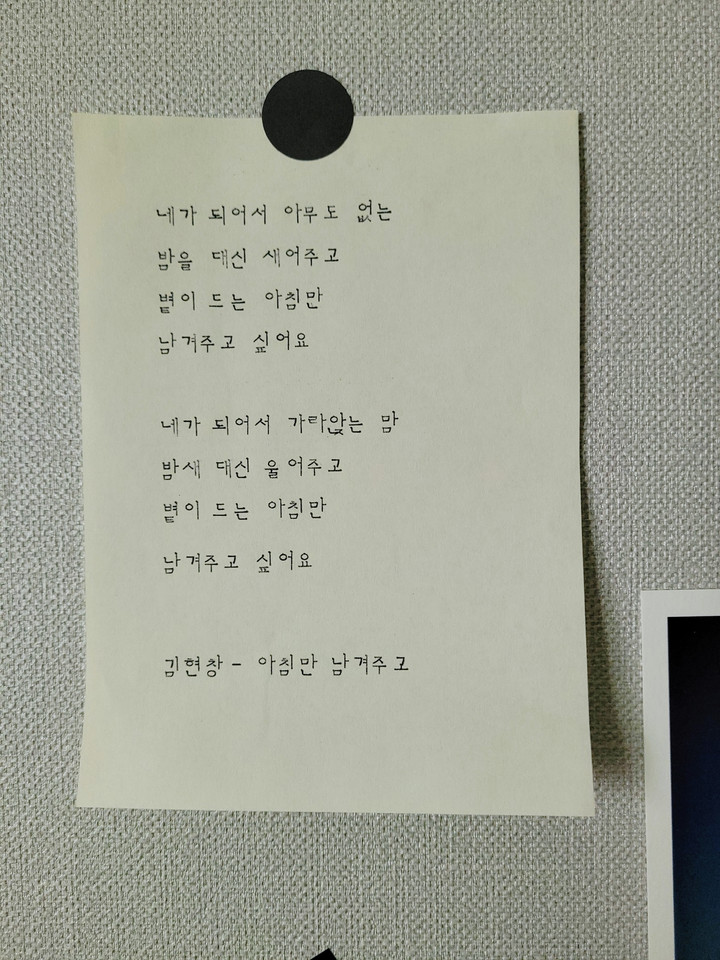 네가 되어서 아무도 없는
밤을 대신 새어주고
볕이 드는 아침만
남겨주고 싶어요
네가 되어서 가라앉는 맘
밤새 대신 울어주고
볕이 드는 아침만
남겨주고 싶어요
김현창 - 아침만 남겨주고